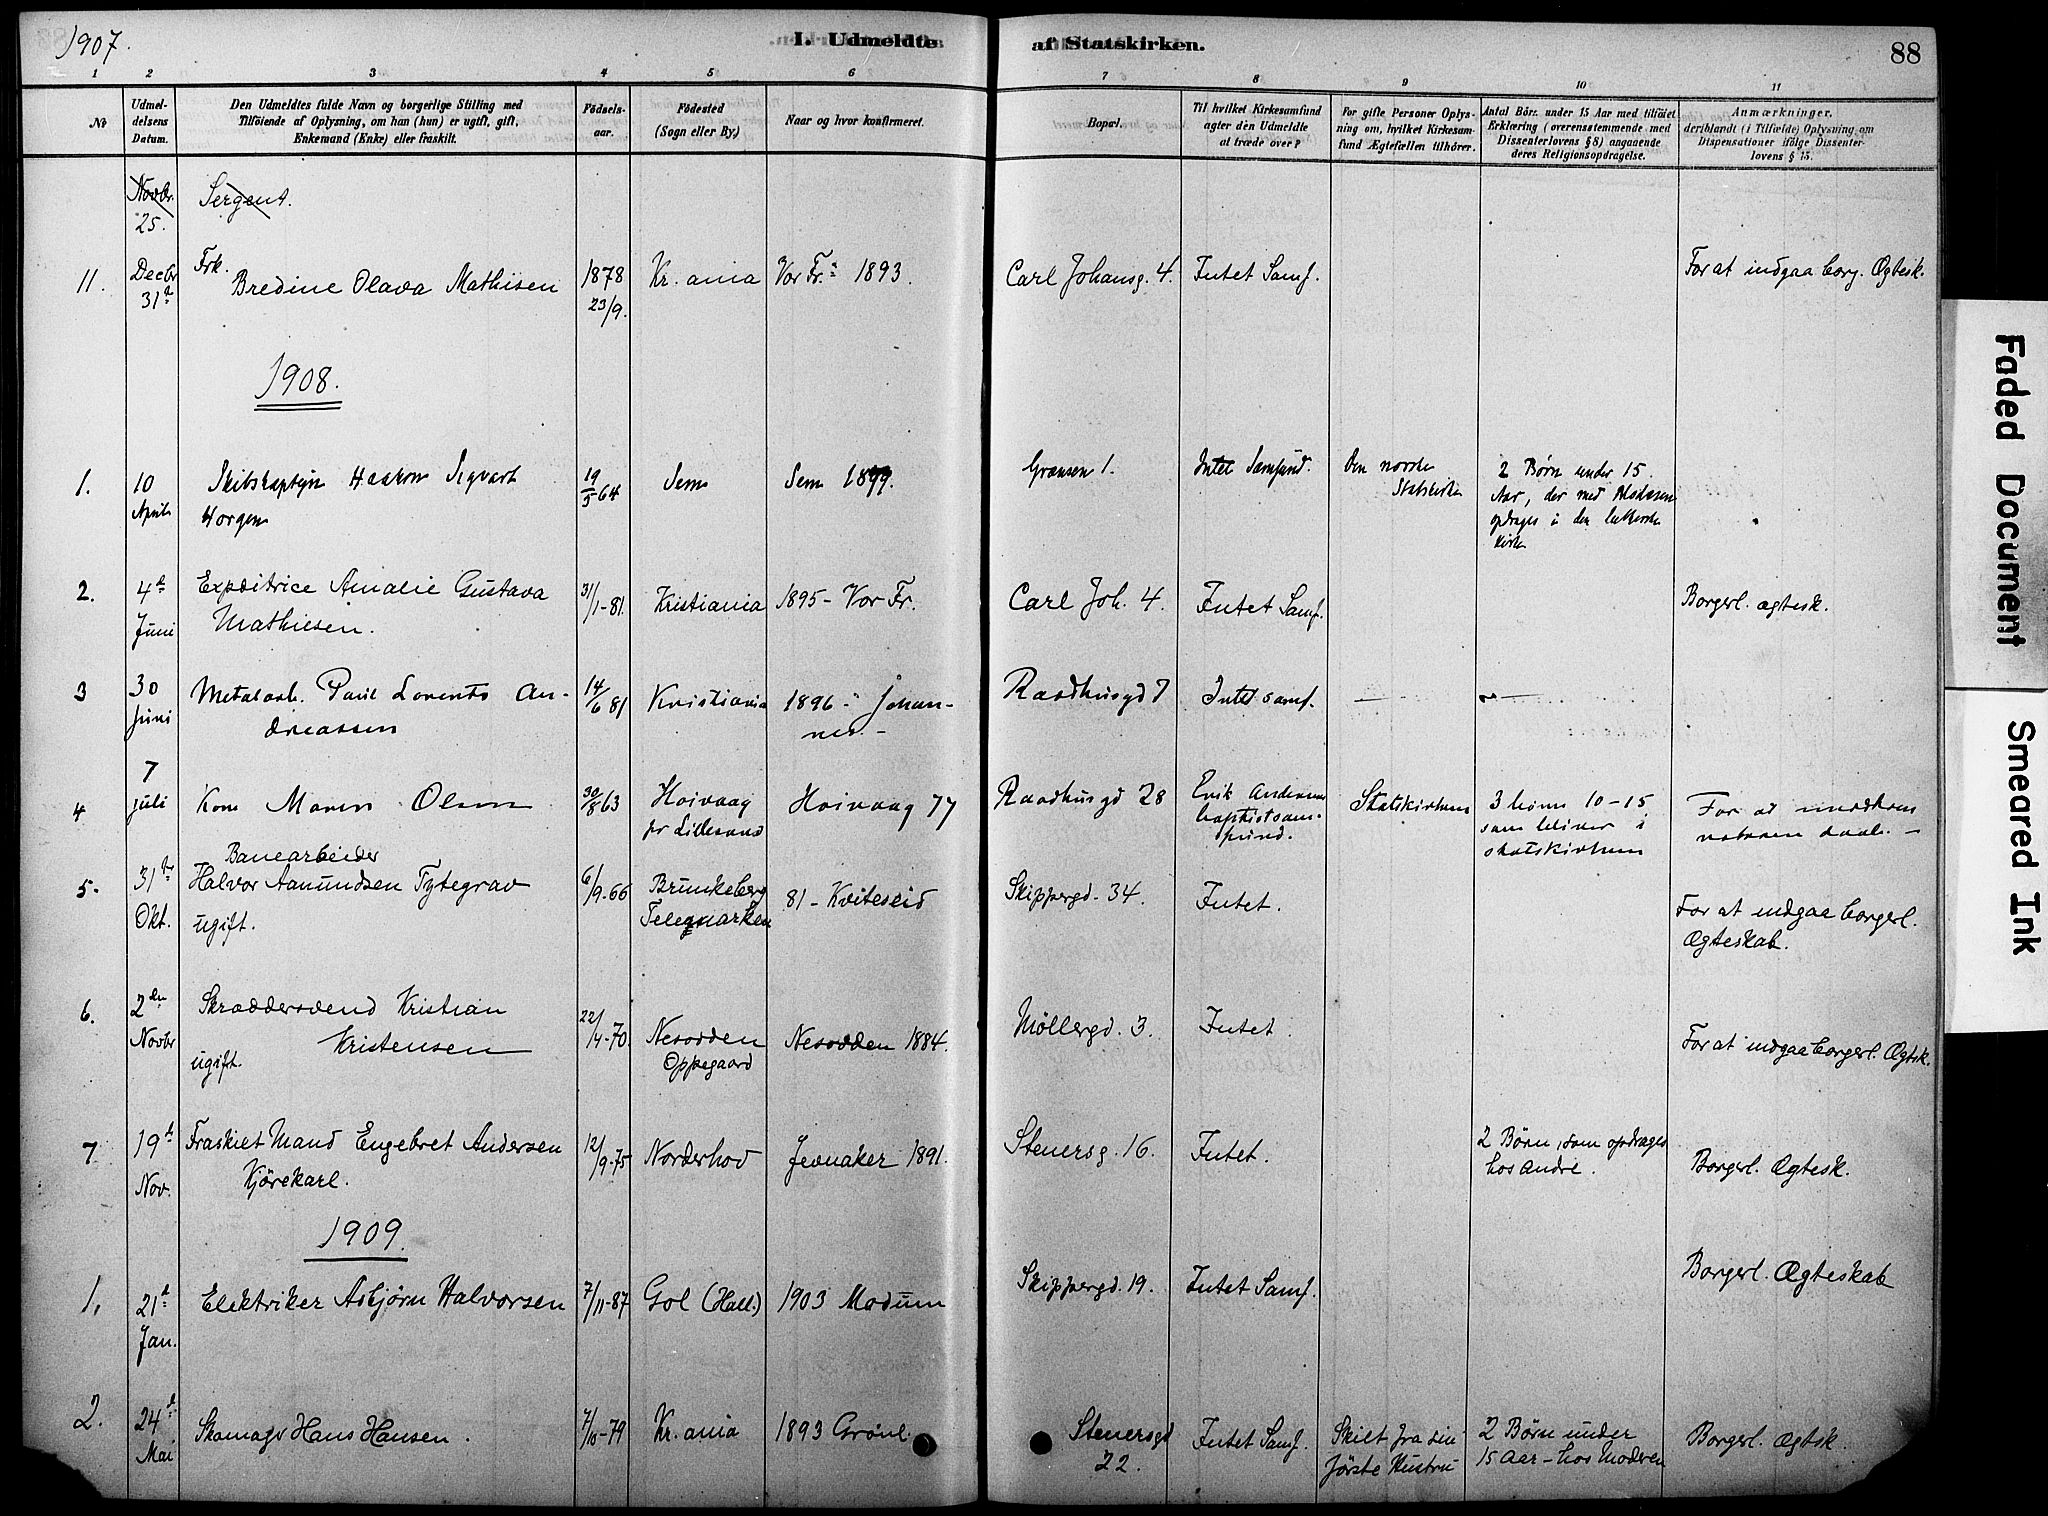 1907.
I. Udmeldte af Statskirken.
88
1 2 3 4 5 6 7 8 9 10 11
No
Udmel-
delsens
Datum.
Den Udmeldtes fulde Navn og borgerlige Stilling med
Tilføiende af Oplysning, om han (hun) er ugift, gift,
Enkemand (Enke) eller fraskilt.
Fødsels-
aar.
Fødested
(Sogn eller By.)
Naar og hvor konfirmeret.
Bopæl.
Til hvilket Kirkesamfund
agter den Udmeldte
at træde over?
For gifte Personer Oplys-
ning om, hvilket Kirkesam-
fund Ægtefællen tilhører.
Antal Børn under 15 Aar med tilføiet
Erklæring (overensstemmende med
Dissenterlovens § 8) angaaende
deres Religionsopdragelse.
Anmærkninger,
deriblandt (i Tilfælde) Oplysning om
Dispensationer ifølge Dissenter-
lovens § 15.
Novbr.
25.
Sergent.
11.
Decbr
31te
Frk.
Bredine Olava Mathisen
1878
23/9.
Kr. ania
Vor Fr. 1893.
Carl Johansg. 4.
Intet Samf.
For at indgaa borg. Ægtesk.
1908.
1.
10
April
Skibskaptein Haakon Sigvart
Horgen
19/5 64
Sem
Sem 1899.
Grænsen 1.
Intet Samfund.
Den norske
Statskirke
2 Børn under 15
Aar, der med Moderen
opdrages i den lutherske
Kirke
2.
4de
Juni
Expeditrice Amalie Gustava
Mathiesen.
31/1-81.
Kristiania
1895 - Vor Fr.
Carl Joh. 4.
Intet Samf.
Borgerl. ægtesk.
3
30
Juni
Metalarb. Paul Lorents An-
dreassen
14/6 81
Kristiania
1896 - Johan-
nes. -
Raadhusgd 7
Intet samf.
4
7
juli
Kone Maren Olsen
30/8 63
Hoivaag
pr Lillesand
Hoivaag 77
Raadhusgd 28
Erik Andersens
baptistsam-
fund.
Statskirken
3 børn 10-15
som bliver i
statskirken
For at modtage
voksen daab. -
5.
31te
Okt.
Banearbeider
Halvor Aanundsen Tytegrav
ugift.
6/9-66
Brunkeberg
Telemarken
81 - Kviteseid
Skippergd. 34.
Intet.
For at indgaa borgerl.
Ægteskab.
6.
2den
Novbr
Skræddersvend Kristian
Kristensen
ugift.
22/4-70.
Nesodden
Oppegaard
Nesodden 1884.
Møllergd. 3.
Intet
For at indgaa borgerl. Ægtsk.
7
19de
Nov.
Fraskilt Mand Engebret Andersen
Kjørekarl.
12/9-75
Norderhov
Jevnaker 1891.
Stenersg. 16.
Intet.
2 Børn, som opdrages
hos andre.
Borgerl. Ægtesk.
1909.
1.
21de
Jan.
Elektriker Asbjørn Halvorsen
7/11-87
Gol (Hall.)
1903 Modum
Skippergd. 19.
Intet Samf.
Borgerl. Ægteskab
2.
24de
Mai
Skomager Hans Hansen.
7/10-79
Kr. ania
1893 Grønl.
Stenersgd
22.
Intet Samf.
Skilt fra sin
første Hustru
2 Børn under
15 Aar - hos Moderen
Borgerl. Ægtsk.
Faded Document
Smeared Ink